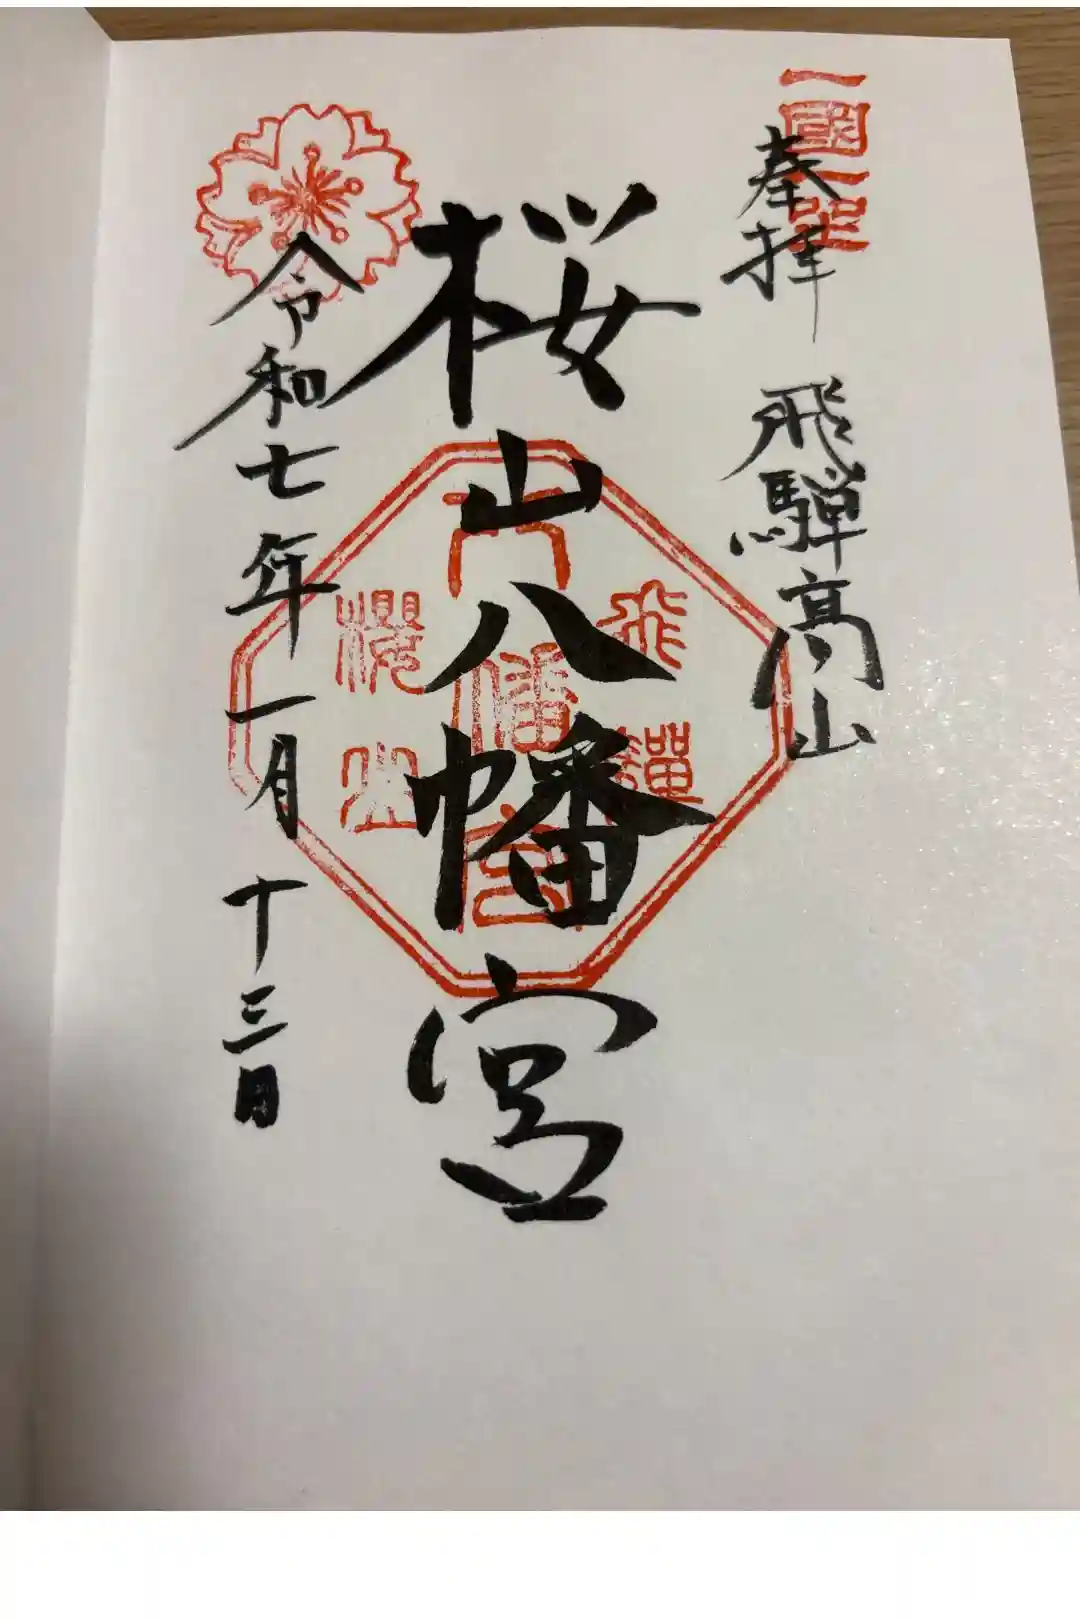 一國一社
奉拝 飛騨高山
桜山八幡宮
飛騨
八幡宮
櫻山
令和七年一月十三日